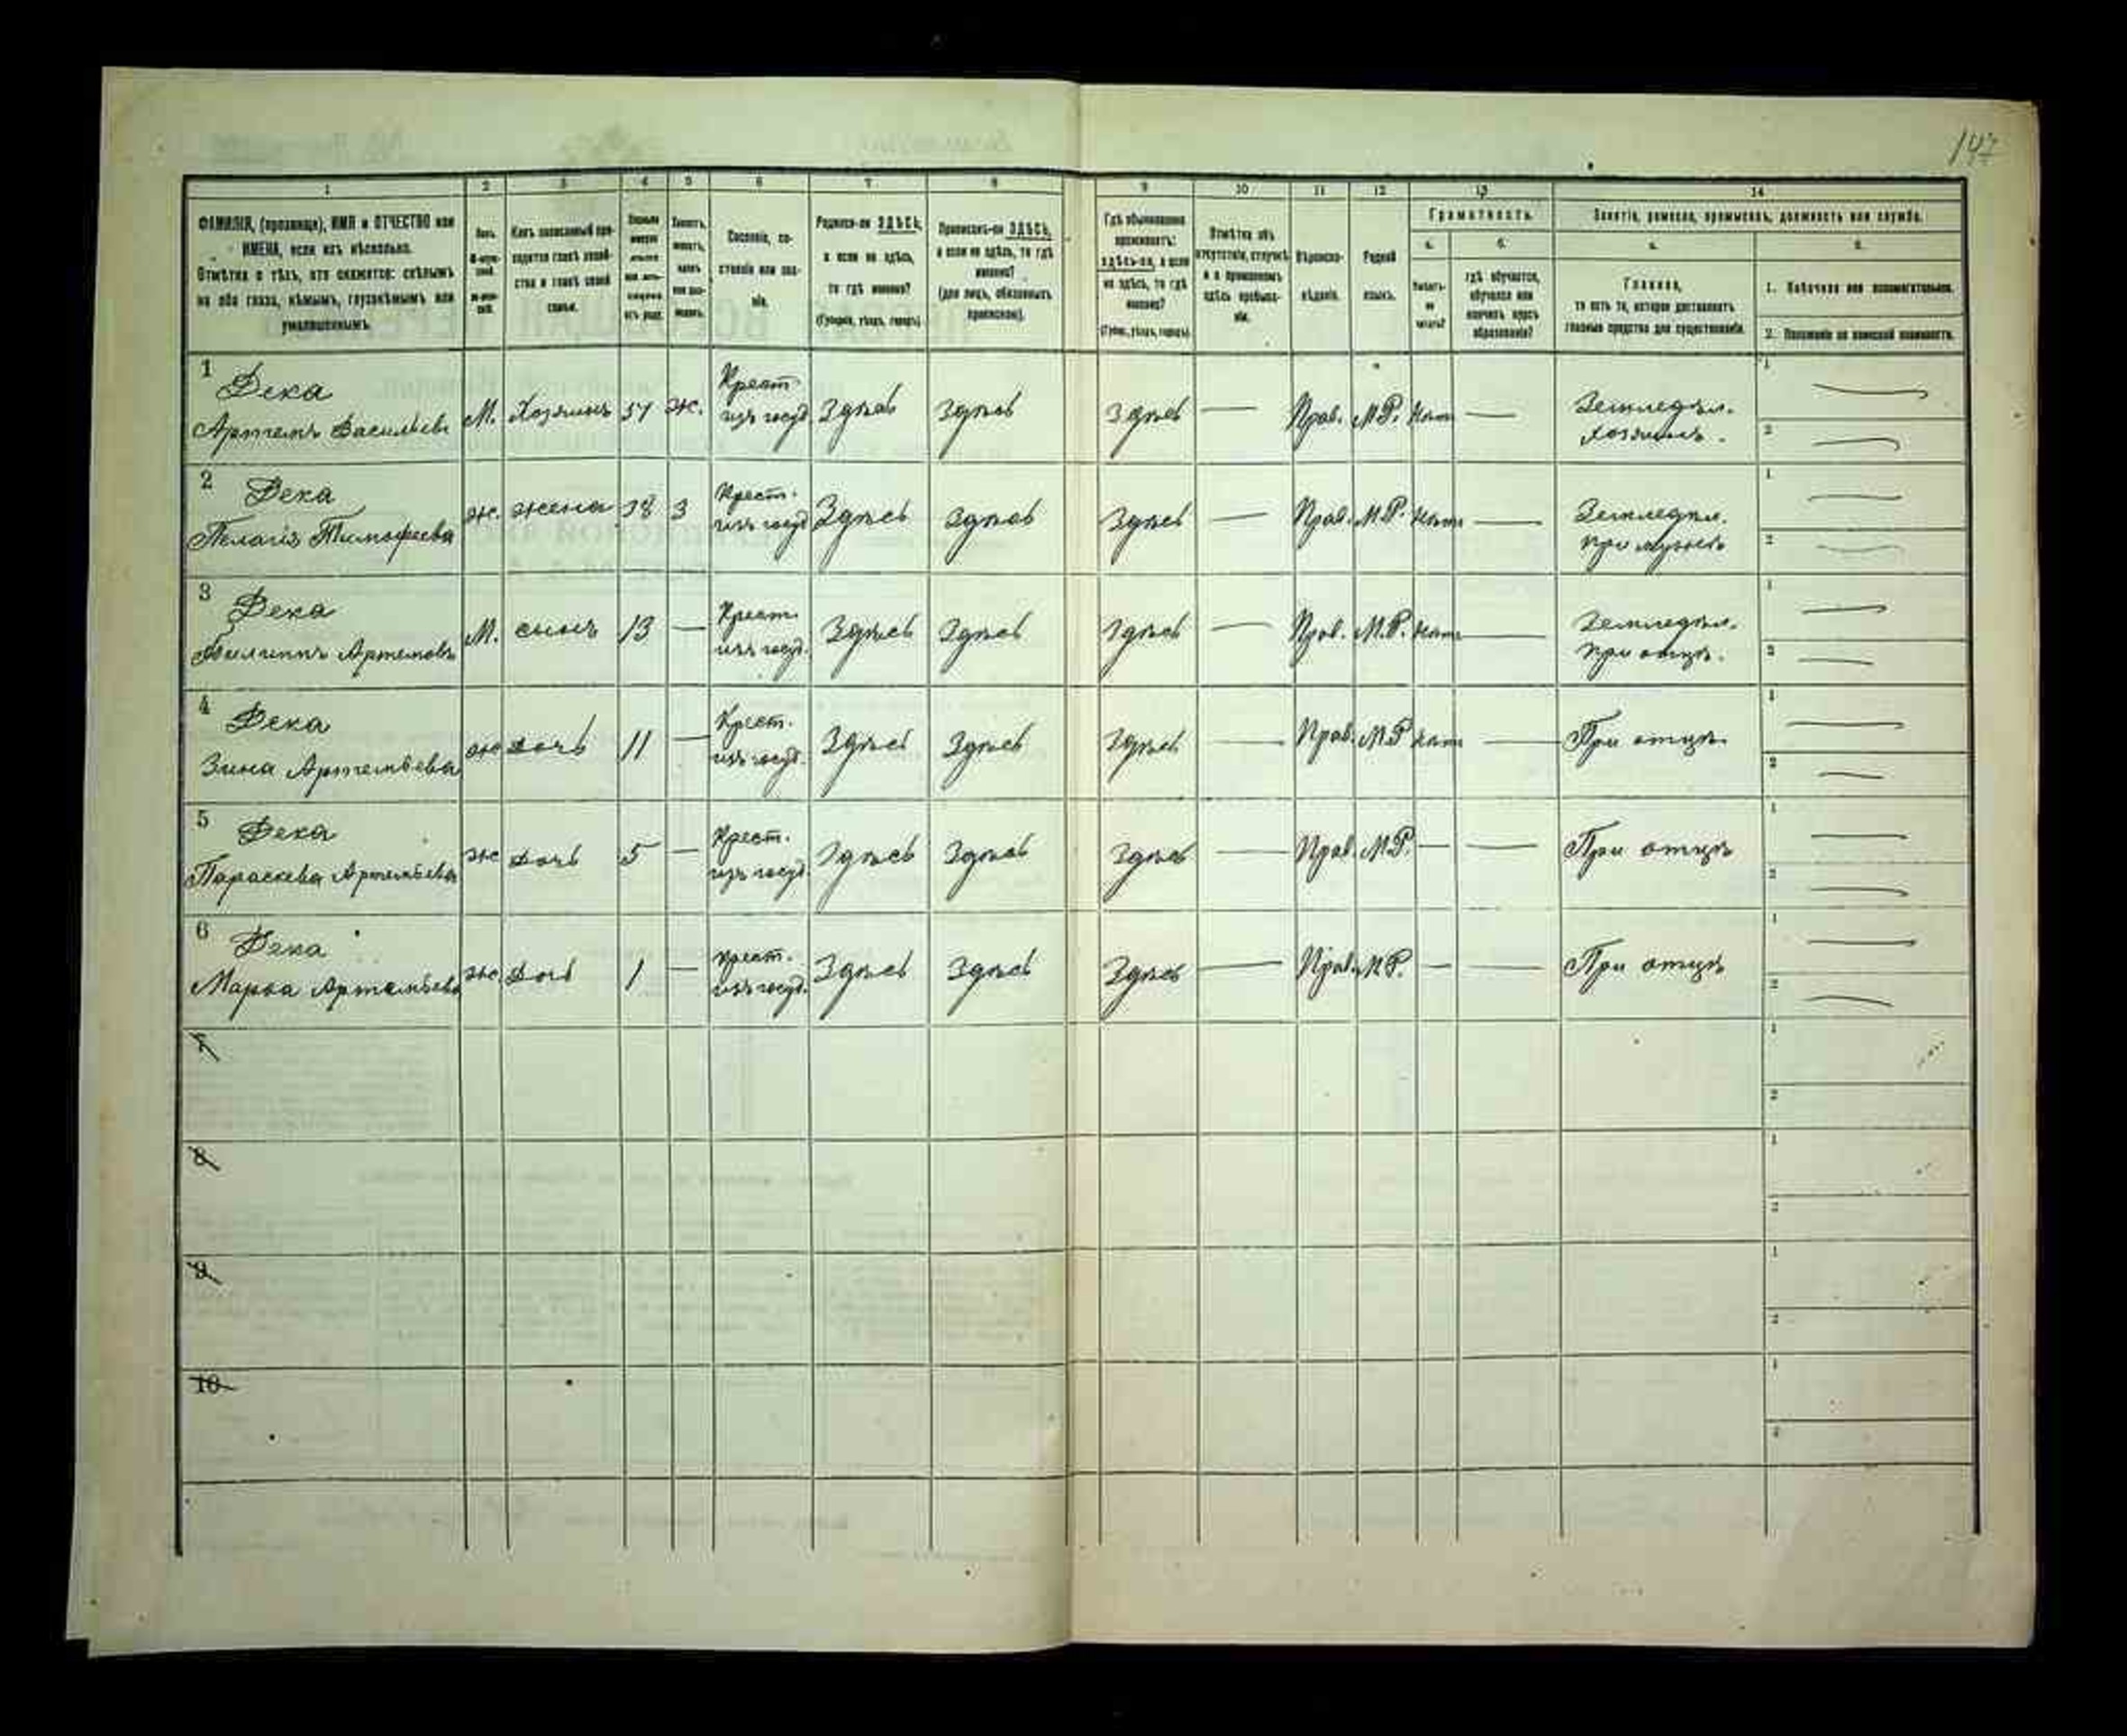 147
1 2 3 4 5 6 7 8 9 10 11 12 13 14
ФАМИЛІЯ, (прозвище), ИМЯ и ОТЧЕСТВО или
ИМЕНА, если ихъ нѣсколько.
Отмѣтка о тѣхъ, кто окажется: слѣпымъ
на оба глаза, нѣмымъ, глухонѣмымъ или
умалишеннымъ.
Полъ.
Какъ записанный при-
ходится главѣ хозяй-
ства и главѣ своей
семьи.
Сословіе, со-
стояніе или зва-
ніе.
Родился-ли ЗДѢСЬ,
а если не здѣсь,
то гдѣ именно?
(Губернія, уѣздъ, городъ).
Приписанъ-ли ЗДѢСЬ,
а если не здѣсь, то гдѣ
именно?
(для лицъ, обязанныхъ
припискою).
Гдѣ обыкновенно
проживаетъ:
здѣсь-ли, а если
не здѣсь, то гдѣ
именно?
(Губер., уѣздъ, городъ).
Отмѣтка объ
отсутствіи, отлучкѣ
и о временномъ
здѣсь пребыва-
ніи.
Вѣроиспо-
вѣданіе.
Родной
языкъ.
Грамотность.
а. б.
Умѣетъ-
ли
читать?
гдѣ обучается,
обучался или
кончилъ курсъ
образованія?
Занятіе, ремесло, промыселъ, должность или служба.
а. б.
Главное,
то есть то, которое доставляетъ
главныя средства для существованія.
1. Побочное или вспомогательное.
2. Положеніе по воинской повинности.
1 Дека
Артемъ Васильевъ М. Хозяинъ 37 Ж. Крест. изъ госуд. Здѣсь Здѣсь Здѣсь — Прав. М.Р. Нѣт — Земледѣл. хозяинъ. 1 — 2 —
2 Дека
Пелагія Тимофеева ж. жена 38 З Крест. изъ госуд. Здѣсь Здѣсь Здѣсь — Прав. М.Р. Нѣт — Земледѣл. при мужѣ 1 — 2 —
3 Дека
Филиппъ Артемовъ М. сынъ 13 — Крест. изъ госуд. Здѣсь Здѣсь Здѣсь — Прав. М.Р. Нѣт — Земледѣл. при отцѣ. 1 — 2 —
4 Дека
Зина Артемьева ж дочь 11 — Крест. изъ госуд. Здѣсь Здѣсь Здѣсь — Прав. М.Р нѣт — При отцѣ 1 — 2 —
5 Дека
Параскева Артемьева ж дочь 5 — Крест. изъ госуд. Здѣсь Здѣсь Здѣсь — Прав. М.Р. — — При отцѣ 1 — 2 —
6 Дека
Марѳа Артемьева ж. дочь 1 — Крест. изъ госуд. Здѣсь Здѣсь Здѣсь — Прав. М.Р. — — При отцѣ 1 — 2 —
7 1 2
8 1 2
9 1 2
10 1 2